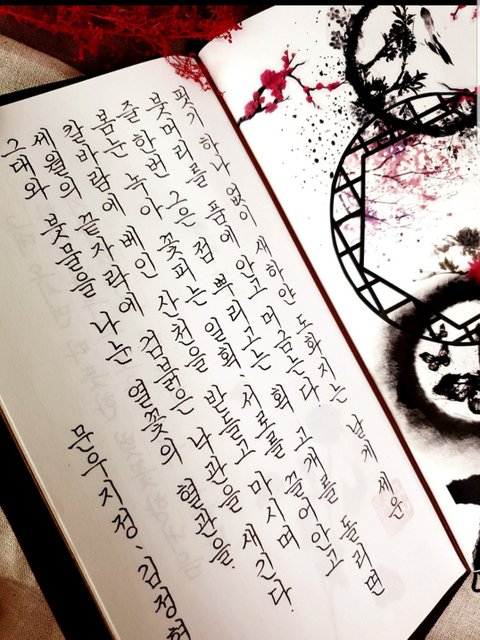 핏기 하나 없이 새하얀 도화지는 날게 세운
붓머리를 품에 안고 머금는다 고개를 돌리면
줄 한번 그은 점 뿌리고는 획 끌어안고
봄눈 녹아 꽃피는 일획, 서로를 마시며
칼바람에 베인 산천을 받들고 새긴다.
세월의 끝자락에 검붉은 혈관을
그대와 붓물을 나눈 열꽃의
문우지정, 김정현